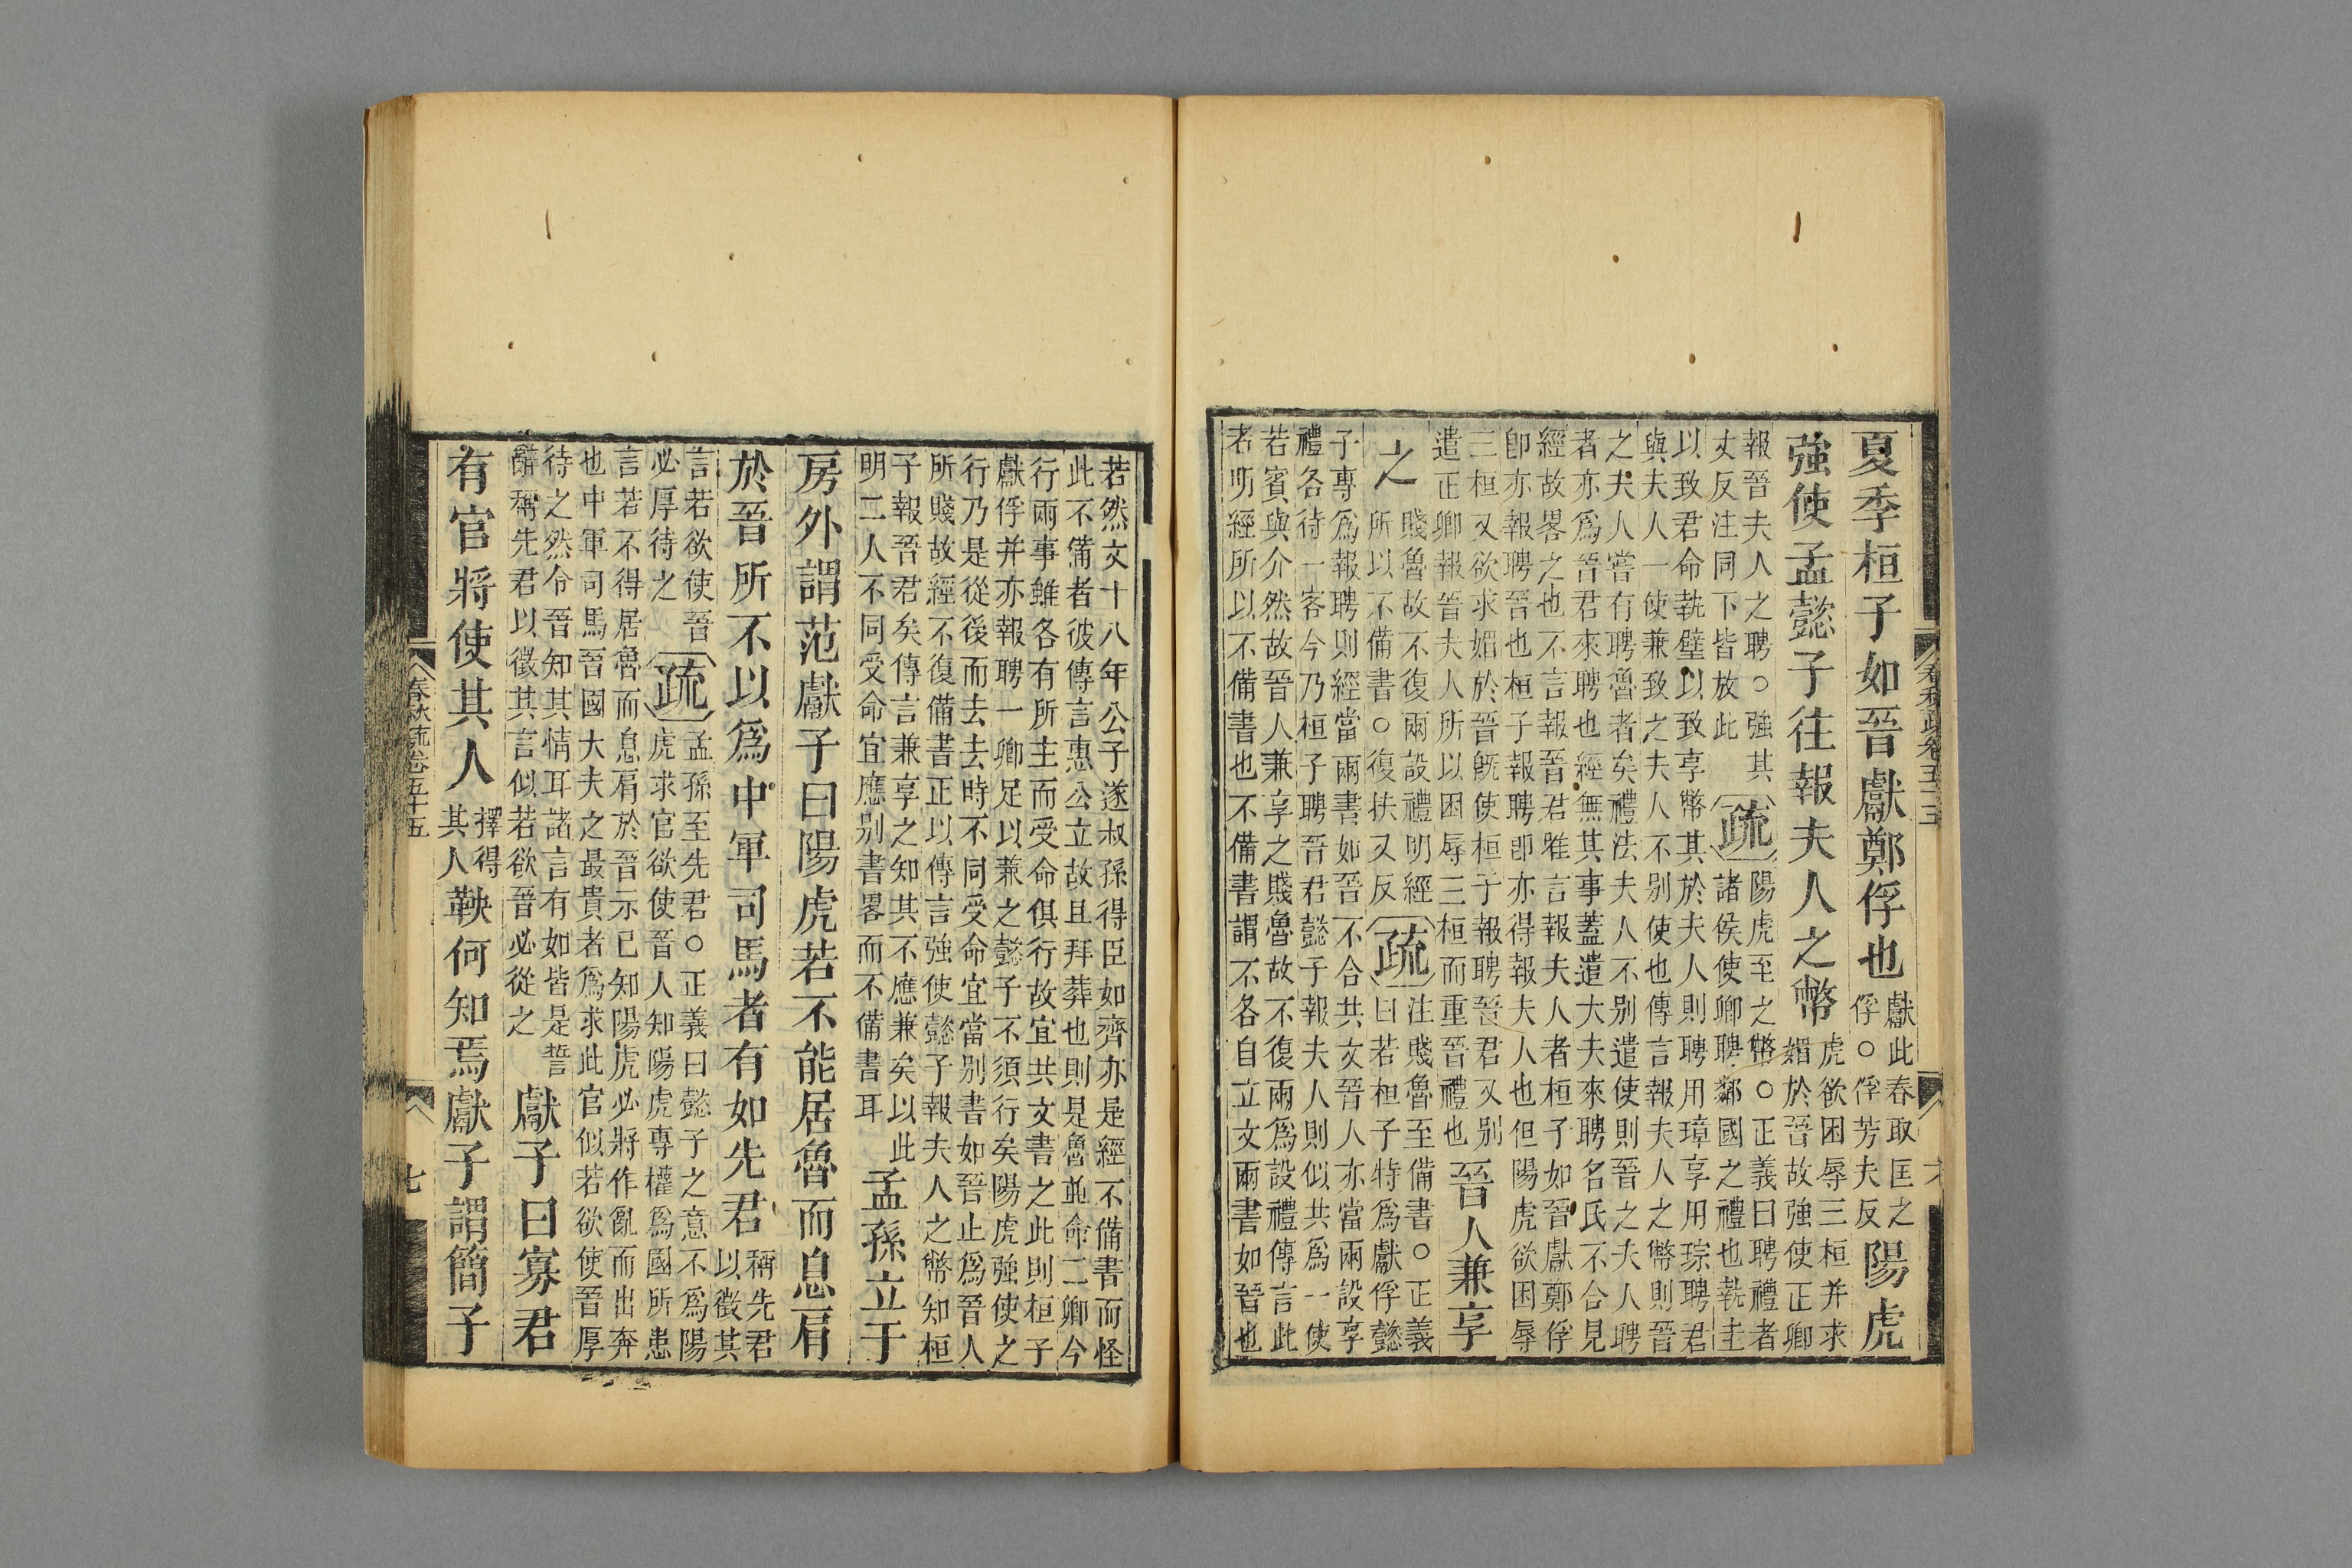 夏季桓子如晉獻鄭俘也
獻此春取匡之
俘○俘芳夫反
陽虎
強使孟懿子往報夫人之幣
虎欲困辱三桓并求
媚於晉故強使正卿
報晉夫人之聘○強其
丈反注同下皆放此
疏
陽虎至之幣○正義曰聘禮者
諸侯使卿聘鄰國之禮也執圭
以致君命執璧以致享幣其於夫人則聘用璋享用琮聘君
與夫人一使兼致之夫人不别使也傳言報夫人之幣則晉
之夫人嘗有聘魯者矣禮法夫人不别遣使則晉之夫人聘
者亦爲晉君來聘也經無其事蓋遣大夫來聘名氏不合見
經故畧之也不言報晉君雖言報夫人者桓子如晉獻鄭俘
卽亦報聘晉也桓子報聘卽亦得報夫人也但陽虎欲困辱
三桓又欲求媚於晉旣使桓子報聘晉君又别
遣正卿報晉夫人所以困辱三桓而重晉禮也
晉人兼享
之
賤魯故不復兩設禮明經
所以不備書○復扶又反
疏
注賤魯至備書○正義
曰若桓子特爲獻俘懿
子專爲報聘則經當兩書如晉不合共文晉人亦當兩設享
禮各待一客今乃桓子聘晉君懿子報夫人則似共爲一使
若賓與介然故晉人兼享之賤魯故不復兩爲設禮傳言此
者明經所以不備書也不備書謂不各自立文兩書如晉也
若然文十八年公子遂叔孫得臣如齊亦是經不備書而怪
此不備者彼傳言惠公立故且拜葬也則是魯並命二卿今
行兩事雖各有所主而受命俱行故宜共文書之此則桓子
獻俘并亦報聘一卿足以兼之懿子不須行矣陽虎強使之
行乃是從後而去去時不同受命宜當别書如晉止爲晉人
所賤故經不復備書正以傳言強使懿子報夫人之幣知桓
子報晉君矣傳言兼享之知其不應兼矣以此
明二人不同受命宜應别書畧而不備書耳
孟孫立于
房外謂范獻子曰陽虎若不能居魯而息肩
於晉所不以爲中軍司馬者有如先君
稱先君
以徵其
言若欲使晉
必厚待之
疏
孟孫至先君○正義曰懿子之意不爲陽
虎求官欲使晉人知陽虎專權爲國所患
言若不得居魯而息肩於晉示已知陽虎必將作亂而出奔
也中軍司馬晉國大夫之最貴者爲求此官似若欲使晉厚
待之然令晉知其情耳諸言有如皆是誓
辭稱先君以徵其言似若欲晉必從之
獻子曰寡君
有官將使其人
擇得
其人
鞅何知焉獻子謂簡子
春秋疏卷五十五
七